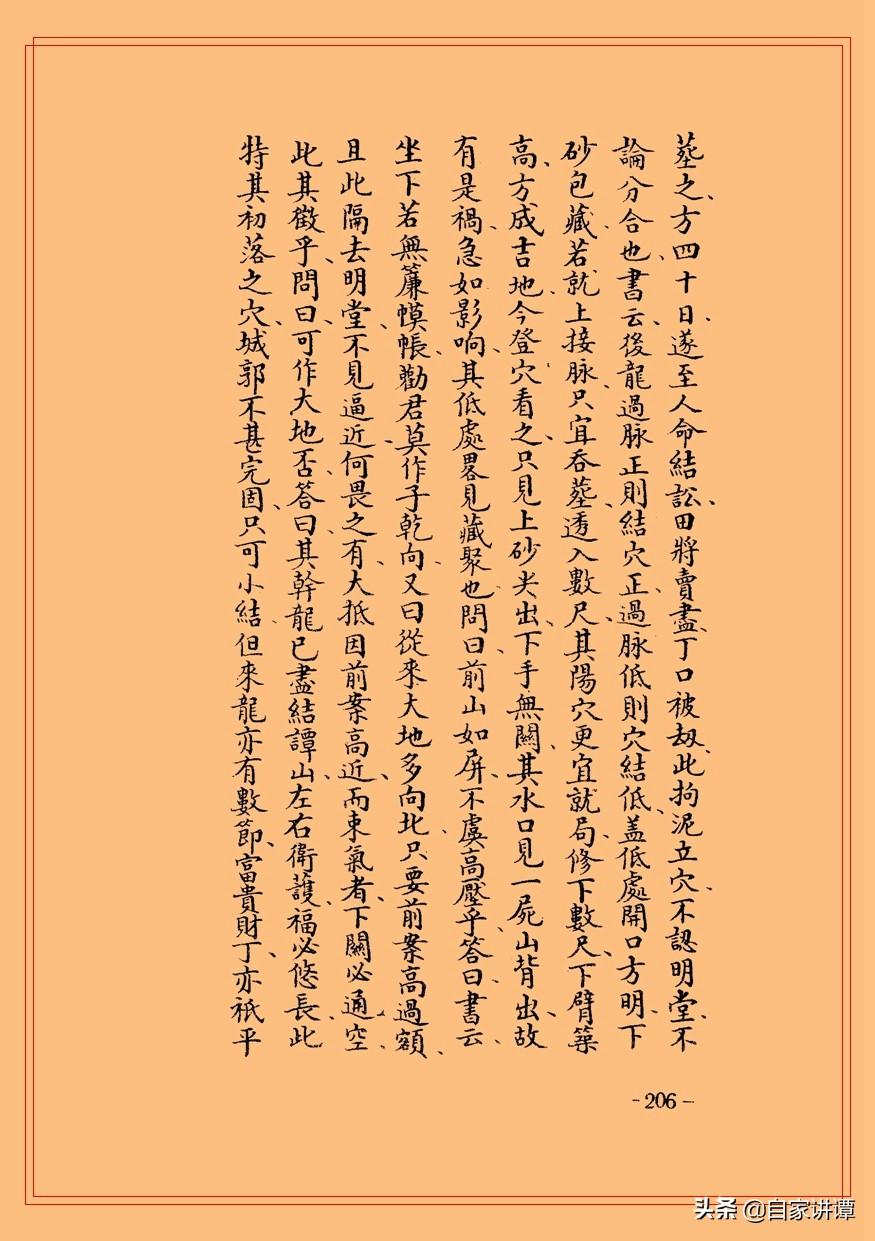 塟之方、四十日、遂至人命結訟、田將賣盡、丁口被刼、此拘泥立穴、不認明堂、不
論分合也、書云、後龍過脉正則結穴正、過脉低則穴結低、盖低處開口方明、下
砂包藏、若就上接脉、只宜吞塟、透入數尺、其陽穴更宜就局、修下數尺、下臂築
高、方成吉地、今登穴看之、只見上砂尖出、下手無關、其水口見一屍山背出、故
有是禍、急如影响、其低處畧見藏聚也、問曰、前山如屏、不虞高壓乎、答曰、書云、
坐下若無簾幙帳、勸君莫作子乾向、又曰從來大地多向北、只要前案高過額、
且此隔去明堂、不見逼近、何畏之有、大抵因前案高近、而束氣者、下關必通、空
此其徵乎、問曰、可作大地否、答曰、其幹龍已盡結譚山、左右衛護、福必悠長、此
特其初落之穴、城郭不甚完固、只可小結、但來龍亦有數節、富貴財丁、亦祇平
-206-
头条 @自家讲谭